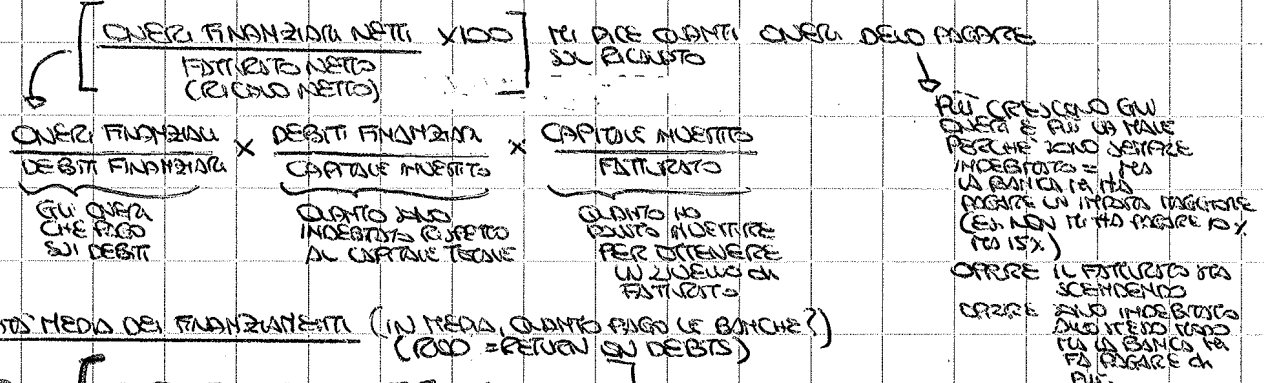 ONERI FINANZIARI NETTI X100
FATTURATO NETTO
(RICAVO NETTO)
MI DICE QUANTI ONERI DEVO PAGARE
SUL RICAVATO
ONERI FINANZIARI × DEBITI FINANZIARI × CAPITALE INVESTITO
DEBITI FINANZIARI CAPITALE INVESTITO FATTURATO
GLI ONERI
CHE PAGO
SUI DEBITI
QUANTO SONO
INDEBITATO RISPETTO
AL CAPITALE TOTALE
QUANTO HO
DOVUTO INVESTIRE
PER OTTENERE
UN LIVELLO di
FATTURATO
PIÙ CRESCONO GLI
ONERI E PIÙ VA MALE
PERCHÉ SONO SEMPRE
INDEBITATO = MA
LA BANCA MI FA
PAGARE UN IMPORTO MAGGIORE
(ES. NON MI FA PAGARE 10%
MA 15%)
OPPURE IL FATTURATO STA
SCENDENDO
OPPURE SONO INDEBITATO
ALLO STESSO MODO
MA LA BANCA MI
FA PAGARE di
PIÙ.
MEDIA DEI FINANZIAMENTI (IN MEDIA, QUANTO PAGO LE BANCHE?)
(ROD = RETURN ON DEBTS)